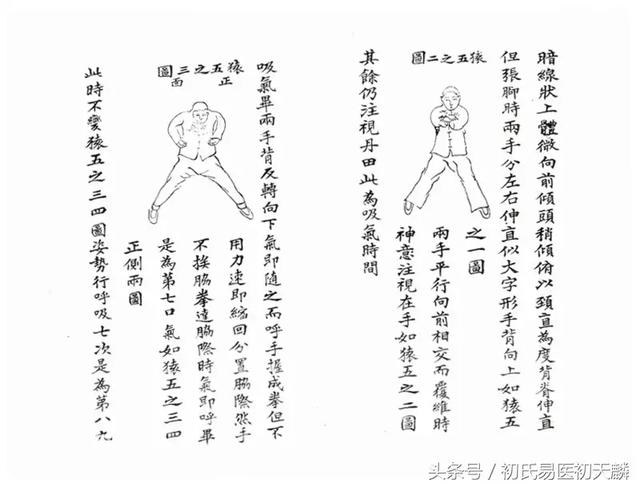 暗線狀上體微向前傾頭稍傾俯以頸直為度背脊伸直
但張聊時兩手分左右伸直似大字形手背向上如猿五
之一圖
兩手平行向前相交而覆維時
神意注視在手如猿五之二圖
猿五之二圖
其餘仍注視丹田此為吸氣時間
吸氣畢兩手背反轉向下氣即隨之而呼手握成拳但不
用力速即縮回分置脇際然手
不挨脇拳達脇際時氣即呼畢
是為第七口氣如猿五之三四
正側兩圖
猿五之三圖
正面
此時不變猿五之三四圖姿勢行呼吸七次是為第八九
头条号／初氏易医初天麟